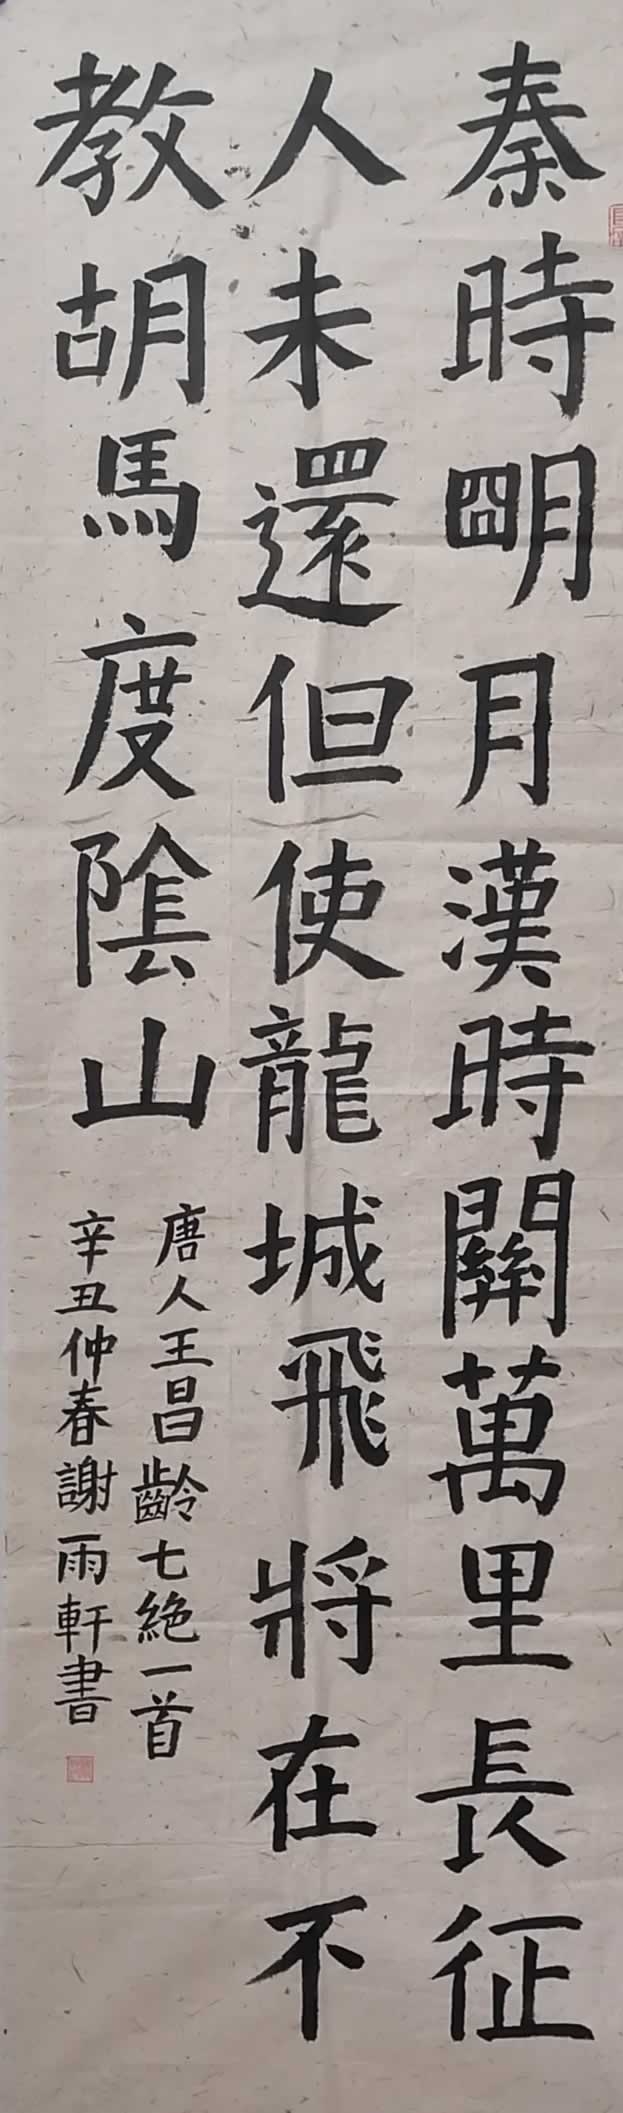 秦時明月漢時關萬里長征
人未還但使龍城飛將在不
教胡馬度陰山
唐人王昌齡七絶一首
辛丑仲春謝雨軒書